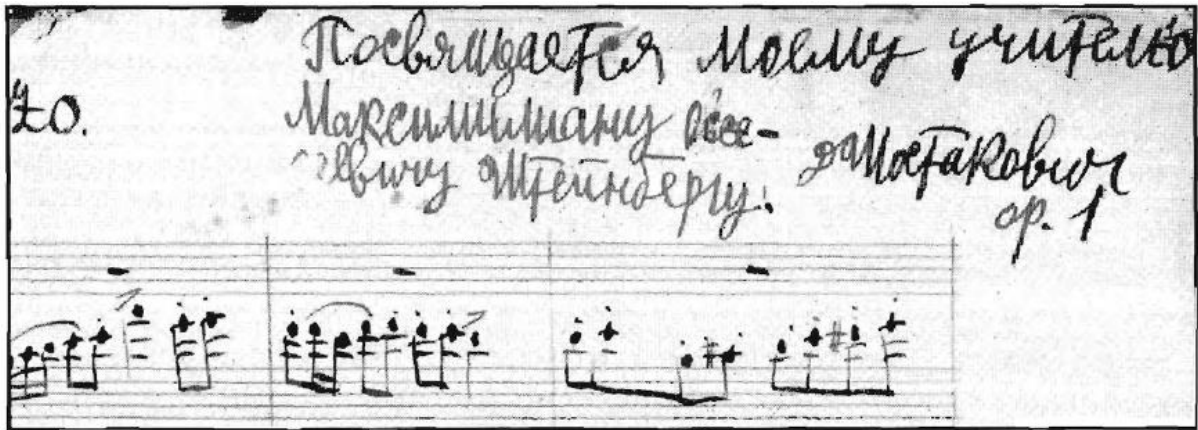 Посвящается моему учителю
Максимилиану Осее-
евичу Штейнбергу.
Д Шостакович
op. 1